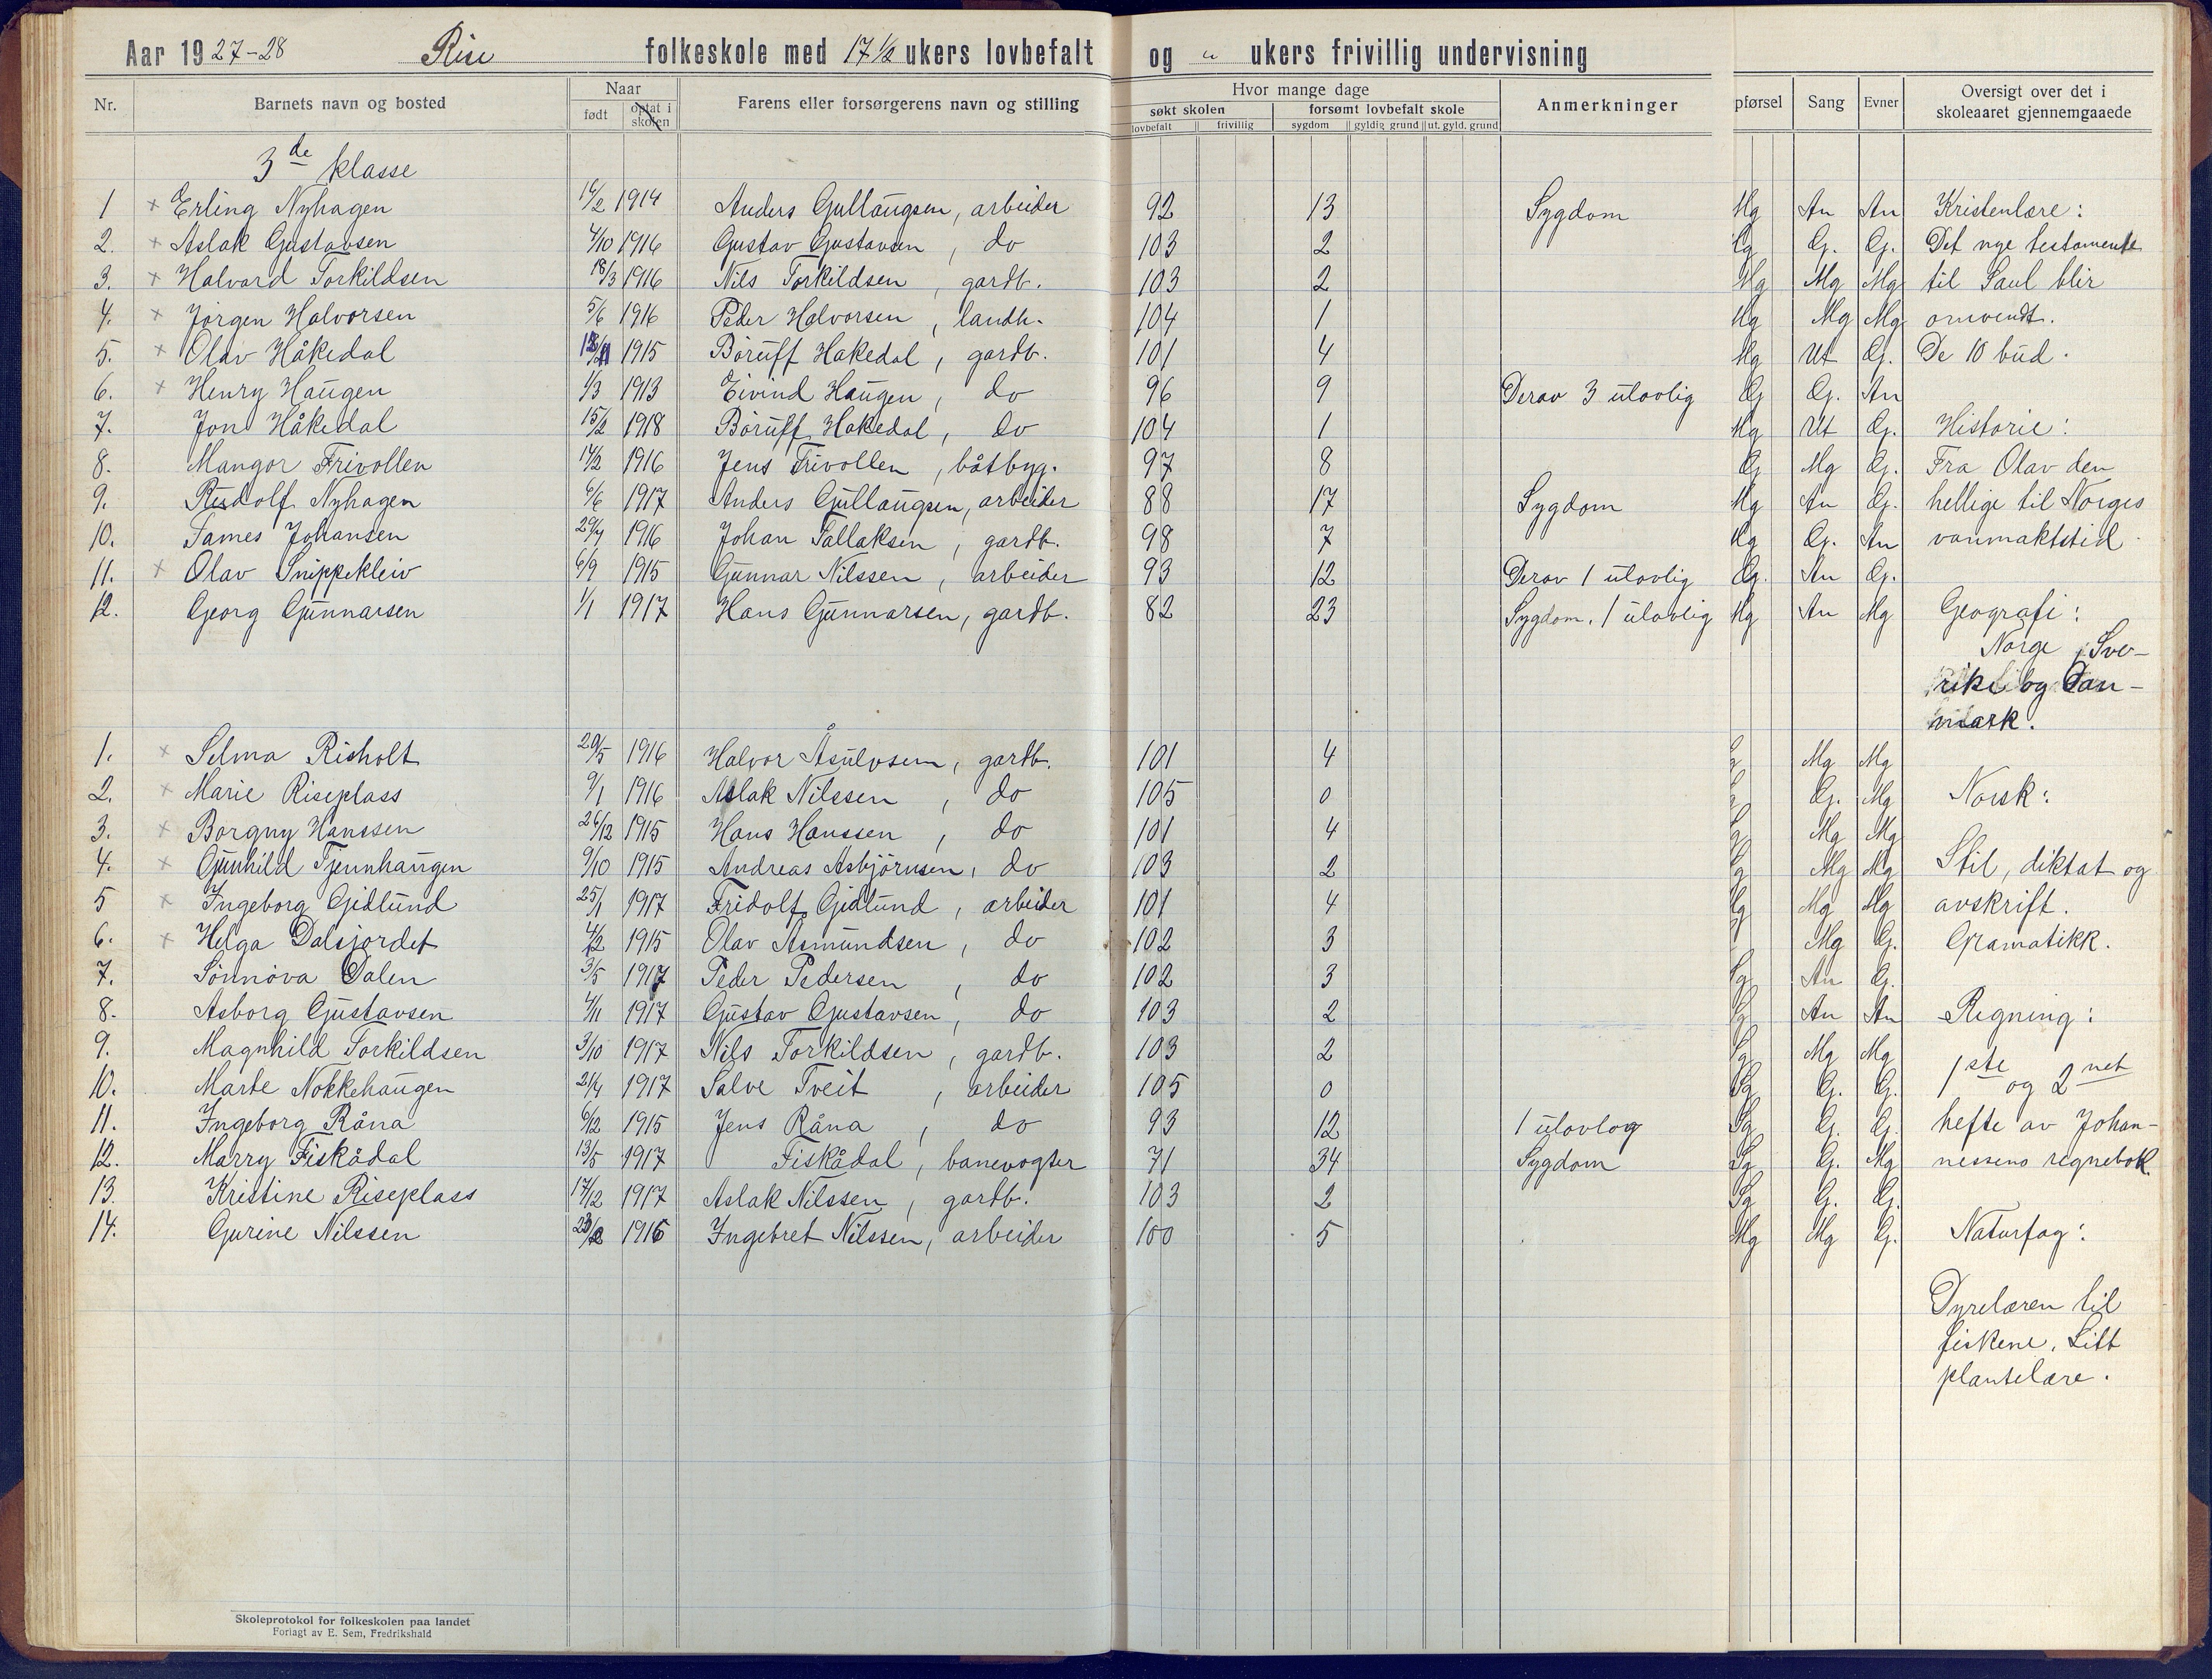 Aar 1927-28 Rise folkeskole med 17 1/2 ukers lovbefalt og " ukers frivillig undervisning
Nr. Barnets navn og bosted Naar født optat i skolen Farens eller forsørgerens navn og stilling Hvor mange dage søkt skolen lovbefalt frivillig forsømt lovbefalt skole sygdom gyldig grund ut. gyld. grund Anmerkninger pførsel Sang Evner Oversigt over det i skoleaaret gjennemgaaede
3de klasse
1 × Erling Nyhagen 14/2 1914 Anders Gullaugsen, arbeider 92 13 Sygdom Mg An An Kristenlære:
2. × Aslak Gustavsen 4/10 1916 Gustav Gustavsen, do 103 2 G. G. Det nye testamente
3. × Halvard Torkildsen 18/3 1916 Nils Torkildsen, gardb. 103 2 Mg Mg Mg til Saul blir
4. × Jørgen Halvorsen 5/6 1916 Peder Halvorsen, landh. 104 1 Mg Mg Mg omvendt.
5. × Olav Håkedal 1915 Børuff Hakedal, gardb. 101 4 Mg Ut G. De 10 bud.
6. × Henry Haugen 1/3 1913 Eivind Haugen, do 96 9 Derav 3 ulovlig G G. An
7. Jon Håkedal 15/2 1918 Børuff Hakedal, do 104 1 Mg Ut G. Historie:
8. Mangor Frivollen 14/2 1916 Jens Frivollen, båtbyg. 97 8 G Mg G. Fra Olav den
9. Rudolf Nyhagen 6/6 1917 Anders Gullaugsen, arbeider 88 17 Sygdom Mg An G. hellige til Norges
10. James Johansen 29/4 1916 Johan Tallaksen, gardb. 98 7 Mg G. An vanmaktstid.
11. × Olav Snippekleiv 6/9 1915 Gunnar Nilssen, arbeider 93 12 Derav 1 ulovlig G. An G.
12. Georg Gunnarsen 1/1 1917 Hans Gunnarsen, gardb. 82 23 Sygdom, 1 ulovlig Mg An Mg Geografi:
Norge, Sve-
rike og Dan-
mark.
1. × Selma Risholt 20/5 1916 Halvor Åsulvsen, gardb. 101 4 Mg Mg
2. × Marie Riseplass 9/1 1916 Aslak Nilssen, do 105 0 G. Mg Norsk:
3. × Borgny Hanssen 26/12 1915 Hans Hanssen, do 101 4 Sg Mg Mg
4. × Gunhild Tjennhaugen 9/10 1915 Andreas Asbjørnsen, do 103 2 Sg Mg Mg Stil, diktat og
5 × Ingeborg Gidlund 25/1 1917 Fridolf Gidlund, arbeider 101 4 Mg Mg avskrift.
6. × Helga Dalsjordet 4/2 1915 Olav Asmundsen, do 102 3 Mg G. Gramatikk.
7. Sønnøva Dalen 3/5 1917 Peder Pedersen, do 102 3 Sg An G.
8. Asborg Gustavsen 4/11 1917 Gustav Gustavsen, do 103 2 Sg An An Regning:
9. Magnhild Torkildsen 3/10 1917 Nils Torkildsen, gardb. 103 2 Sg Mg Mg
10. Marte Nokkehaugen 21/4 1917 Salve Tveit, arbeider 105 0 Sg G. G. 1ste og 2net
11. Ingeborg Råna 6/12 1915 Jens Råna, do 93 12 1 ulovlog Sg G. G. hefte av Johan-
12. Marry Fiskådal 13/5 1917 Fiskådal, banevogter 71 34 Sygdom Sg G. Mg nessens regnebok
13. Kristine Riseplass 17/12 1917 Aslak Nilssen, gardb. 103 2 Sg G. G.
14. Gurine Nilssen 1916 Ingebret Nilssen, arbeider 100 5 Mg Mg G. Naturfag:
Dyrelæren til
fiskene. Litt
plantelære.
Skoleprotokol for folkeskolen paa landet
Forlagt av E. Sem, Fredrikshald